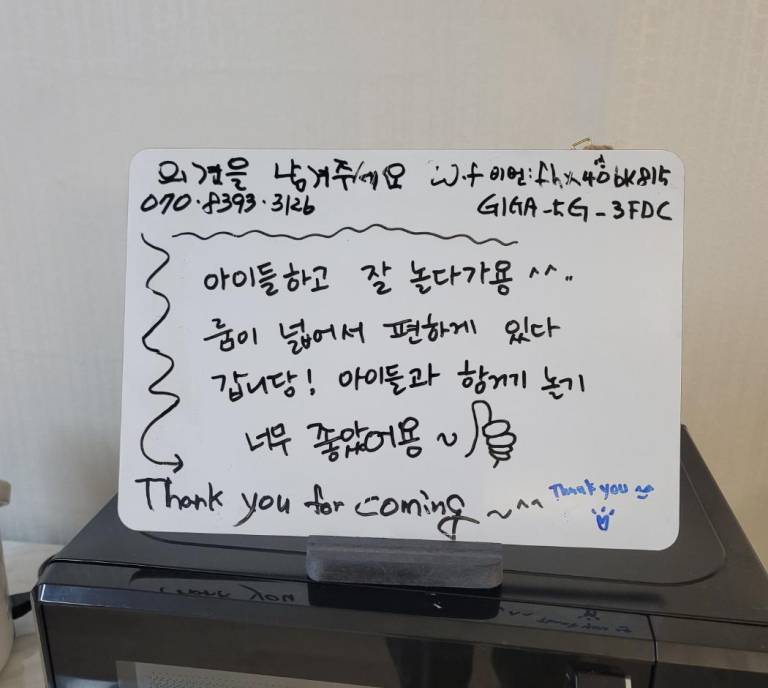 의견을 남겨주세요
070·8393·3126
GIGA-5G-3FDC
아이들하고 잘 놀다가용 ^^..
룸이 넓어서 편하게 있다
갑니당! 아이들과 함께기 놀기
너무 좋았어용~
Thank you for coming ~^^
Thank you